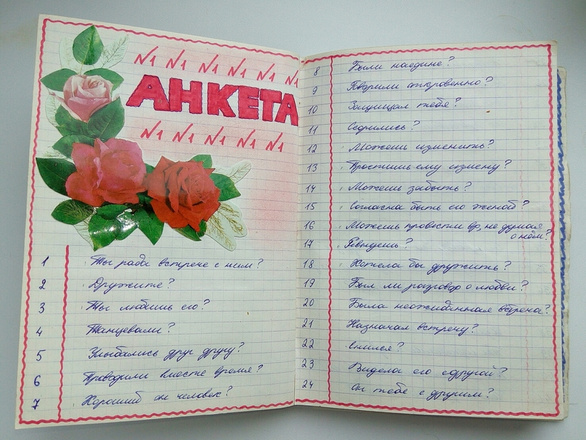 №1 №1 №1 №1 №1 №1
АНКЕТА
№1 №1 №1 №1 №1
1 Ты рада встрече с ним?
2 Дружите?
3 Ты любишь его?
4 Танцевали?
5 Улыбались друг другу?
6 Проводили вместе время?
7 Хороший он человек?
8 Были наедине?
9 Говорили откровенно?
10 Защищал тебя?
11 Ссорились?
12 Можешь изменить?
13 Простишь ему измену?
14 Можешь забыть?
15 Согласна быть его женой?
16 Можешь провести др. не думая
о нём?
17 Ревнуешь?
18 Хотела бы дружить?
19 Был ли разговор о любви?
20 Была неожиданная встреча?
21 Назначал встречу?
22 Снился?
23 Видела его с другой?
24 Он тебе с другим?